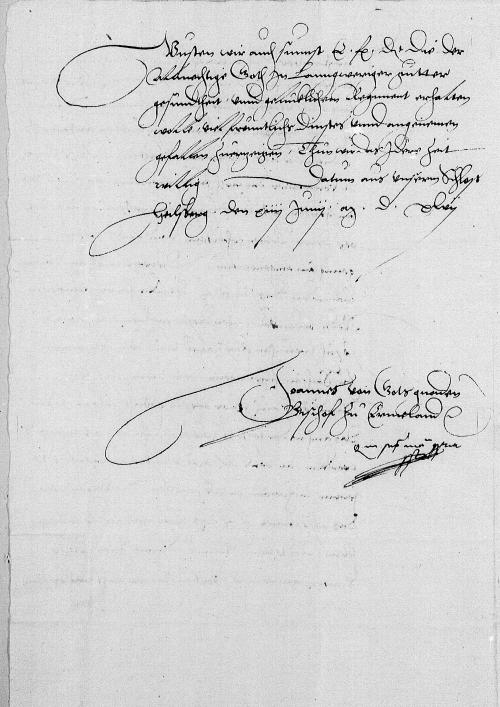 Wusten wir auch sunst E. f. d. die der
Almechtige Goth In Langweriger gutter
gesundtheit vnnd glucklichem Regiment erhalten
wolle, viel freuntlichs dinstes vnnd angenemen
gefallen zuertzeigen Thun wir das Jder Zeit
willig Datum aus vnserm Schlos
Heilsberg den xiiij Junij a. d. xlvij
Joannes von Gots gnaden
Bischof zu Ermeland
manu propria